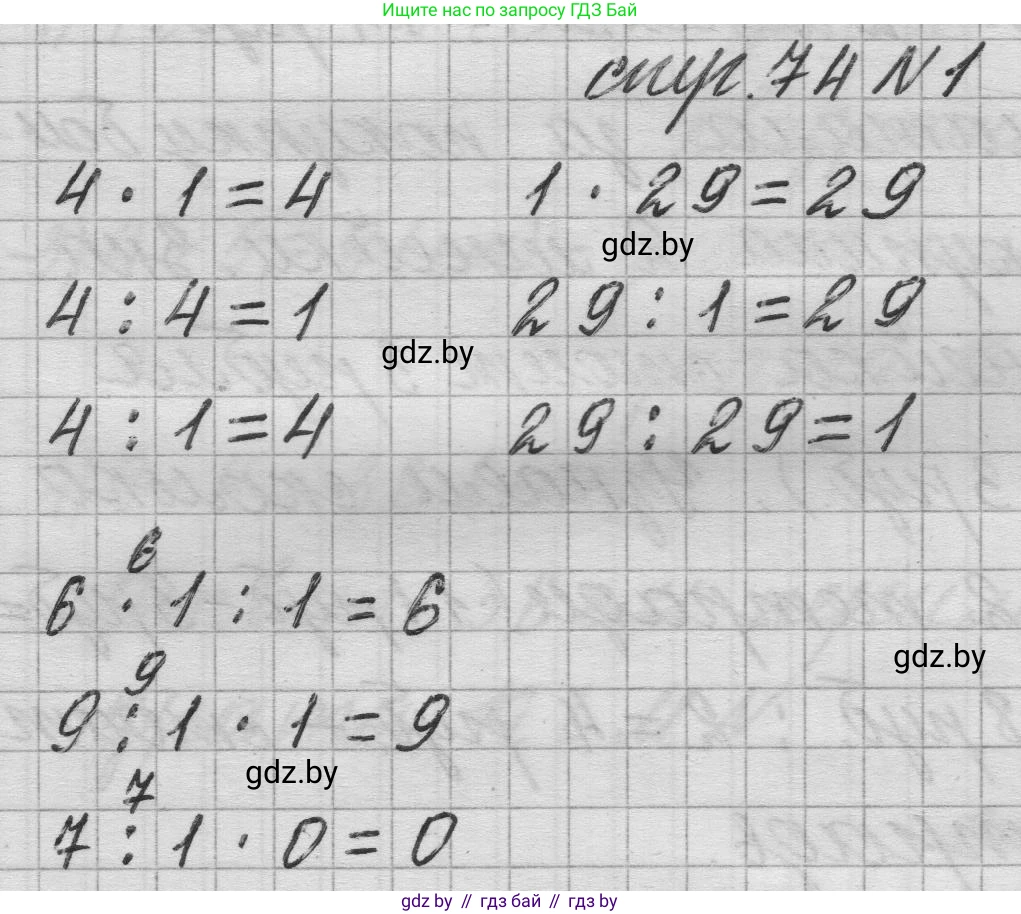 Ищите нас по запросу ГДЗ Бай
стр. 74 N 1
4 · 1 = 4
1 · 29 = 29
gdz.by
4 : 4 = 1
29 : 1 = 29
gdz.by
4 : 1 = 4
29 : 29 = 1
6
6 · 1 : 1 = 6
gdz.by
9
9 : 1 · 1 = 9
gdz.by
7
7 : 1 · 0 = 0
gdz by // гдз бай // гдз by